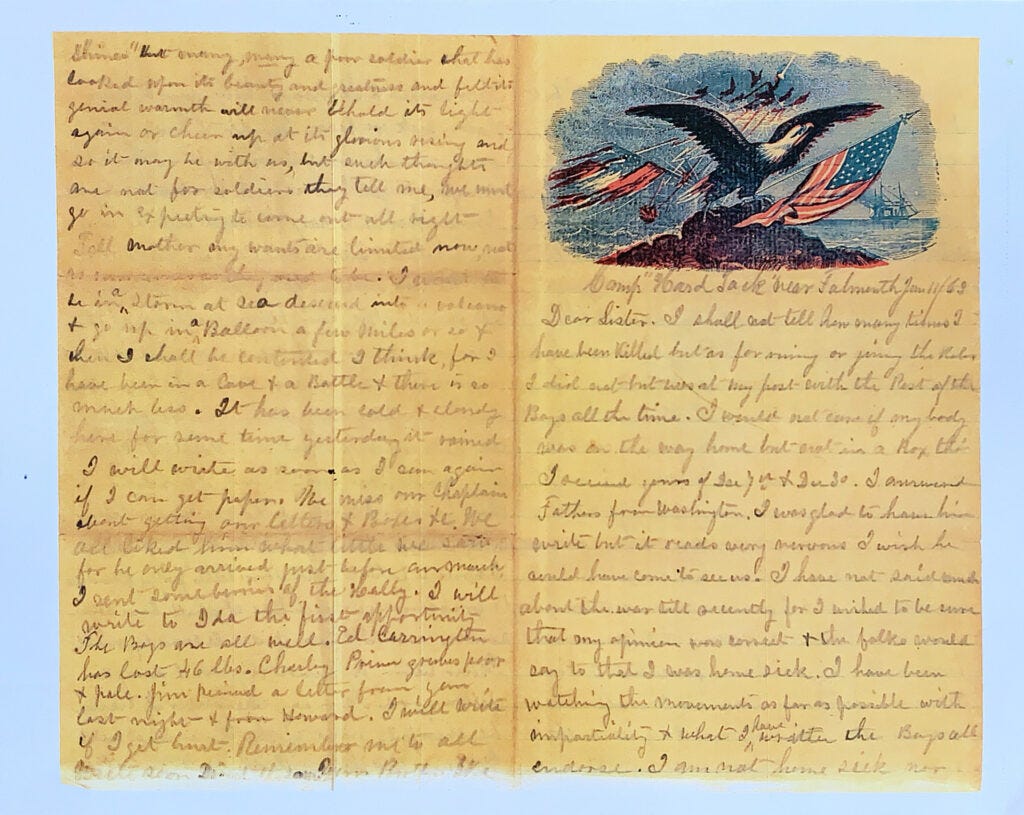 Camp "Hard Tack" Near Falmouth Jan 11/63
Dear Sister. I shall not tell how many times I
have been Killed but as for runing or jining the Rebs
I did not but was at my post with the Rest of the
Boys all the time. I would not care if my body
was on the way home but not in a Box tho
I received yours of Dec 7th & Dec 30. I answered
Fathers from Washington. I was glad to have him
write but it reads very nervous I wish he
could have come to see us. I have not said much
about the war till recently for I wished to be sure
that my opinion was correct & the folks would
say to that I was home sick. I have been
watching the movements as far as possible with
impartiality & what I have written the Boys all
endorse. I am not home sick nor
Shines" but many, many a poor soldier that has
looked upon its beauty and greatness and felt its
genial warmth will never behold its light
again or cheer up at its glorious rising and
so it may be with us, but such thoughts
are not for soldiers they tell me, we must
go in Expecting to come out all right
Tell mother my wants are limited now, not
as numerous as they used to be. I want to
be in a Storm at sea descend into a volcano
& go up in a Balloon a few miles or so &
then I shall be contented I think, for I
have been in a Cave & a Battle & there is so
much less. It has been cold & cloudy
here for some time yesterday it rained
I will write as soon as I can again
if I can get paper. We miss our Chaplain
about getting our letters & Boxes &c. We
all liked him what little we saw
for he only arrived just before our march
I sent some berries of the Holly. I will
write to Ida the first opportunity
The Boys are all well. Ed Carrington
has lost 46 lbs. Charley Prior grows poor
& pale. Jim received a letter from
last night & from Howard. I will write
if I get hurt. Remember me to all
Write soon